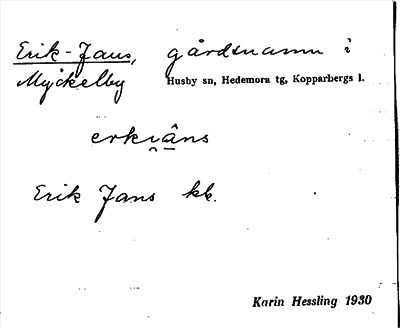 Erik-Jans, gårdsnamn i
Myckelby Husby sn, Hedemora tg, Kopparbergs l.
erki̯â̱ns
Erik Jans kb.
Karin Hessling 1930